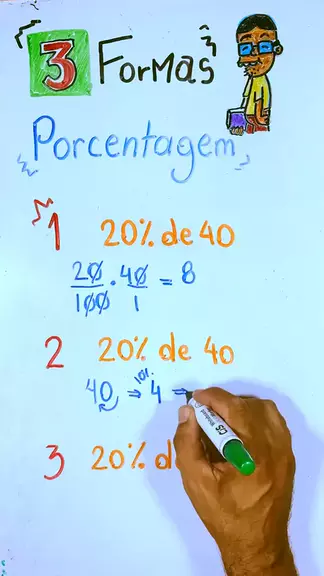 3 Formas
Porcentagem
1 20% de 40
20/100 · 40/1 = 8
2 20% de 40
40 ⇒ 10% 4 ⇒
3 20% d